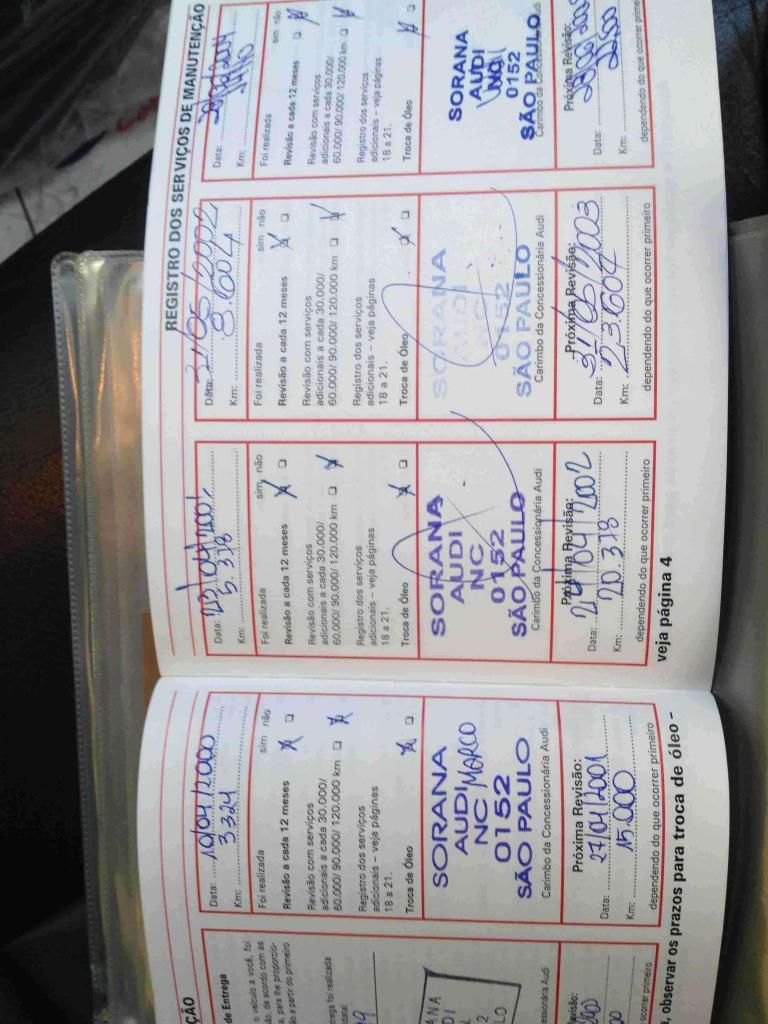 ÇÃO
de Entrega
o veículo a você, foi
ão, de acordo com as
a, para lhe proporcio-
ão a partir do primeiro
rega foi realizada
ANA
DI
2
LO
ssionária Audi
Revisão:
correr primeiro
Data: 10/04/2000
Km: 3324
Foi realizada sim não
Revisão a cada 12 meses
Revisão com serviços
adicionais a cada 30.000/
60.000/ 90.000/ 120.000 km
Registro dos serviços
adicionais – veja páginas
18 a 21.
Troca de Óleo
SORANA
AUDI
NC MARCO
0152
SÃO PAULO
Carimbo da Concessionária Audi
Próxima Revisão:
Data: 27/04/2001
Km: 15.000
dependendo do que ocorrer primeiro
, observar os prazos para troca de óleo -
REGISTRO DOS SERVIÇOS DE MANUTENÇÃO
Data: 23/04/2001
Km: 5.378
Foi realizada sim não
Revisão a cada 12 meses
Revisão com serviços
adicionais a cada 30.000/
60.000/ 90.000/ 120.000 km
Registro dos serviços
adicionais – veja páginas
18 a 21.
Troca de Óleo
SORANA
AUDI
NC
0152
SÃO PAULO
Carimbo da Concessionária Audi
Próxima Revisão:
Data: 24/04/2002
Km: 20.378
dependendo do que ocorrer primeiro
Data: 31/05/2002
Km: 8.604
Foi realizada sim não
Revisão a cada 12 meses
Revisão com serviços
adicionais a cada 30.000/
60.000/ 90.000/ 120.000 km
Registro dos serviços
adicionais – veja páginas
18 a 21.
Troca de Óleo
SORANA
AUDI
0152
SÃO PAULO
Carimbo da Concessionária Audi
Próxima Revisão:
Data: 31/05/2003
Km: 23.604
dependendo do que ocorrer primeiro
Data:
Km:
Foi realizada sim não
Revisão a cada 12 meses
Revisão com serviços
adicionais a cada 30.000/
60.000/ 90.000/ 120.000 km
Registro dos serviços
adicionais – veja páginas
18 a 21.
Troca de Óleo
SORANA
AUDI
NC
0152
SÃO PAULO
Carimbo da Concessionária Audi
Próxima Revisão:
Data:
Km:
dependendo do que ocorrer primeiro
veja página 4